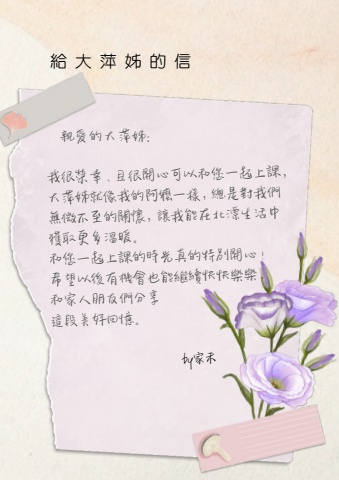 給大萍姊的信
親愛的大萍姊:
我很榮幸、且很開心可以和您一起上課,
大萍姊就像我的阿嬤一樣,總是對我們
無微不至的關懷,讓我能在北漂生活中
獲取更多溫暖。
和您一起上課的時光真的特別開心!
希望以後有機會也能繼續快快樂樂
和家人朋友們分享
這段美好回憶。
by家禾